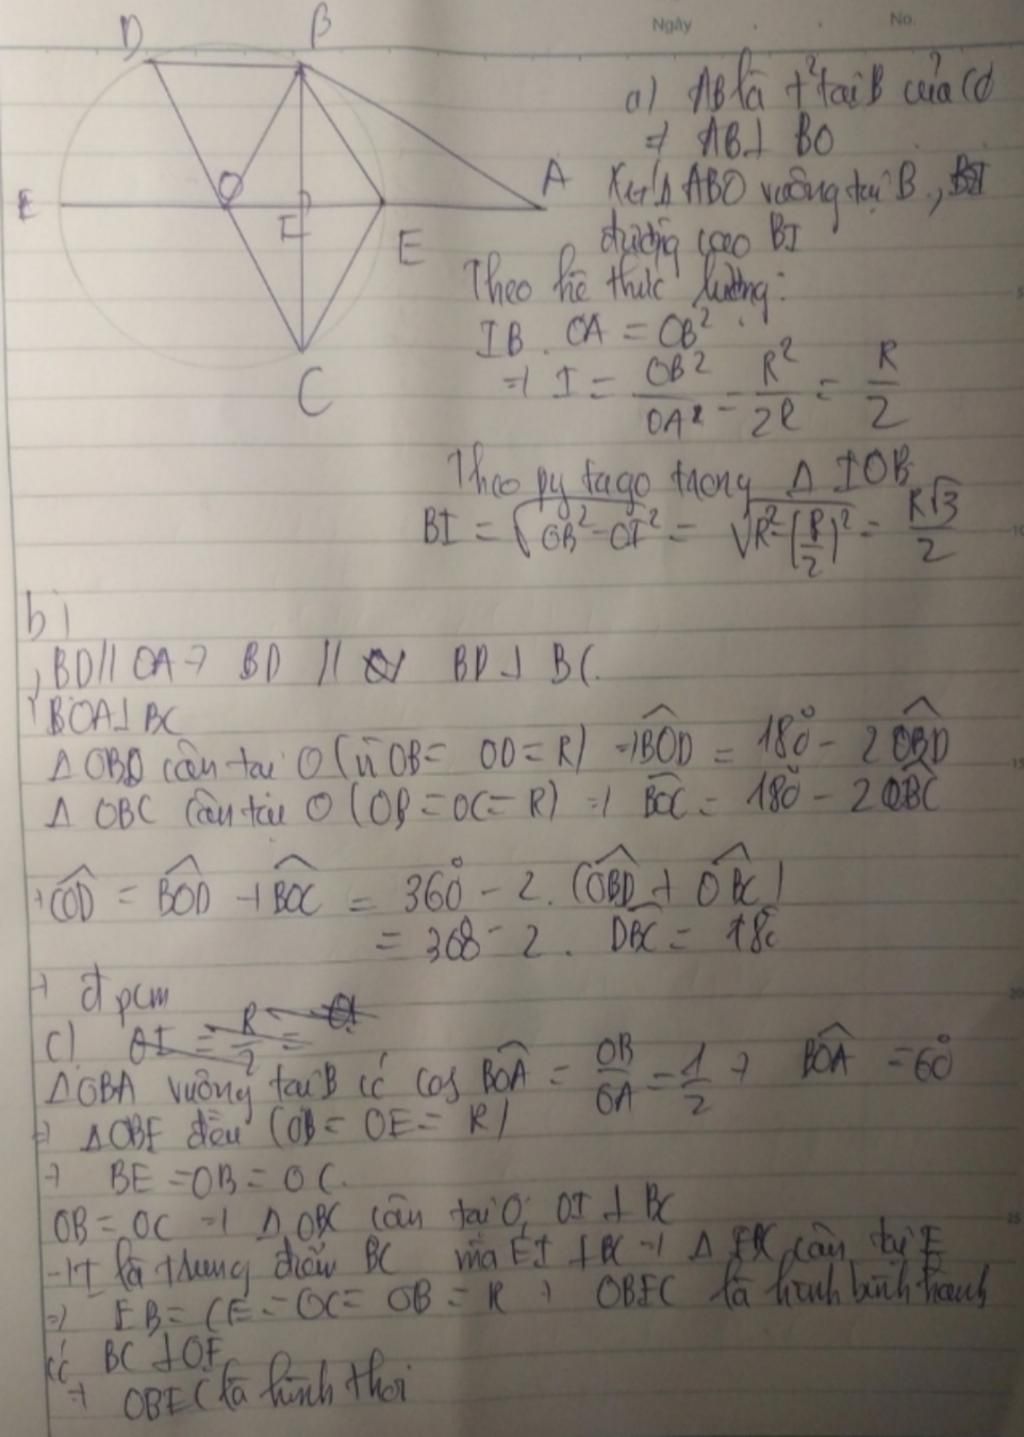 Ngày No.
D B
a) AB là t² tại B của (O
⇒ AB⊥ BO
O A E
Xét Δ ABO vuông tại B,
I E
đường cao BI
Theo hê thức lường:
IB . OA = OB²
C
⇒ I = OB²/OA² = R²/2R = R/2
Theo py tago trong Δ IOB
BI = √OB²-OI² = √R²-(R/2)² = R√3/2
b)
BD // OA → BD // BD ⊥ BC.
BOA⊥ BC
Δ OBD cân tại O (vì OB = OD = R) ⇒ BOD = 180° - 2 OBD
Δ OBC cân tại O (OB = OC = R) ⇒ BOC = 180° - 2 OBC
COD = BOD + BOC = 360° - 2. (OBD + OBC)
= 360 - 2. DBC = 180
→ đpcm
c) OI = R/2 =
ΔOBA vuông tại B có cos BOA = OB/OA = 1/2 → BOA = 60°
⇒ ΔOBE đều (OB = OE = R)
→ BE = OB = OC.
OB = OC ⇒ Δ OBC cân tại O; OI ⊥ BC
⇒ I là trung điểm BC mà EI ⊥ BC ⇒ Δ EBC cân tại E
⇒ EB = CE = OC = OB = R → OBEC là hình bình hành
có BC ⊥ OE
⇒ OBEC là hình thoi